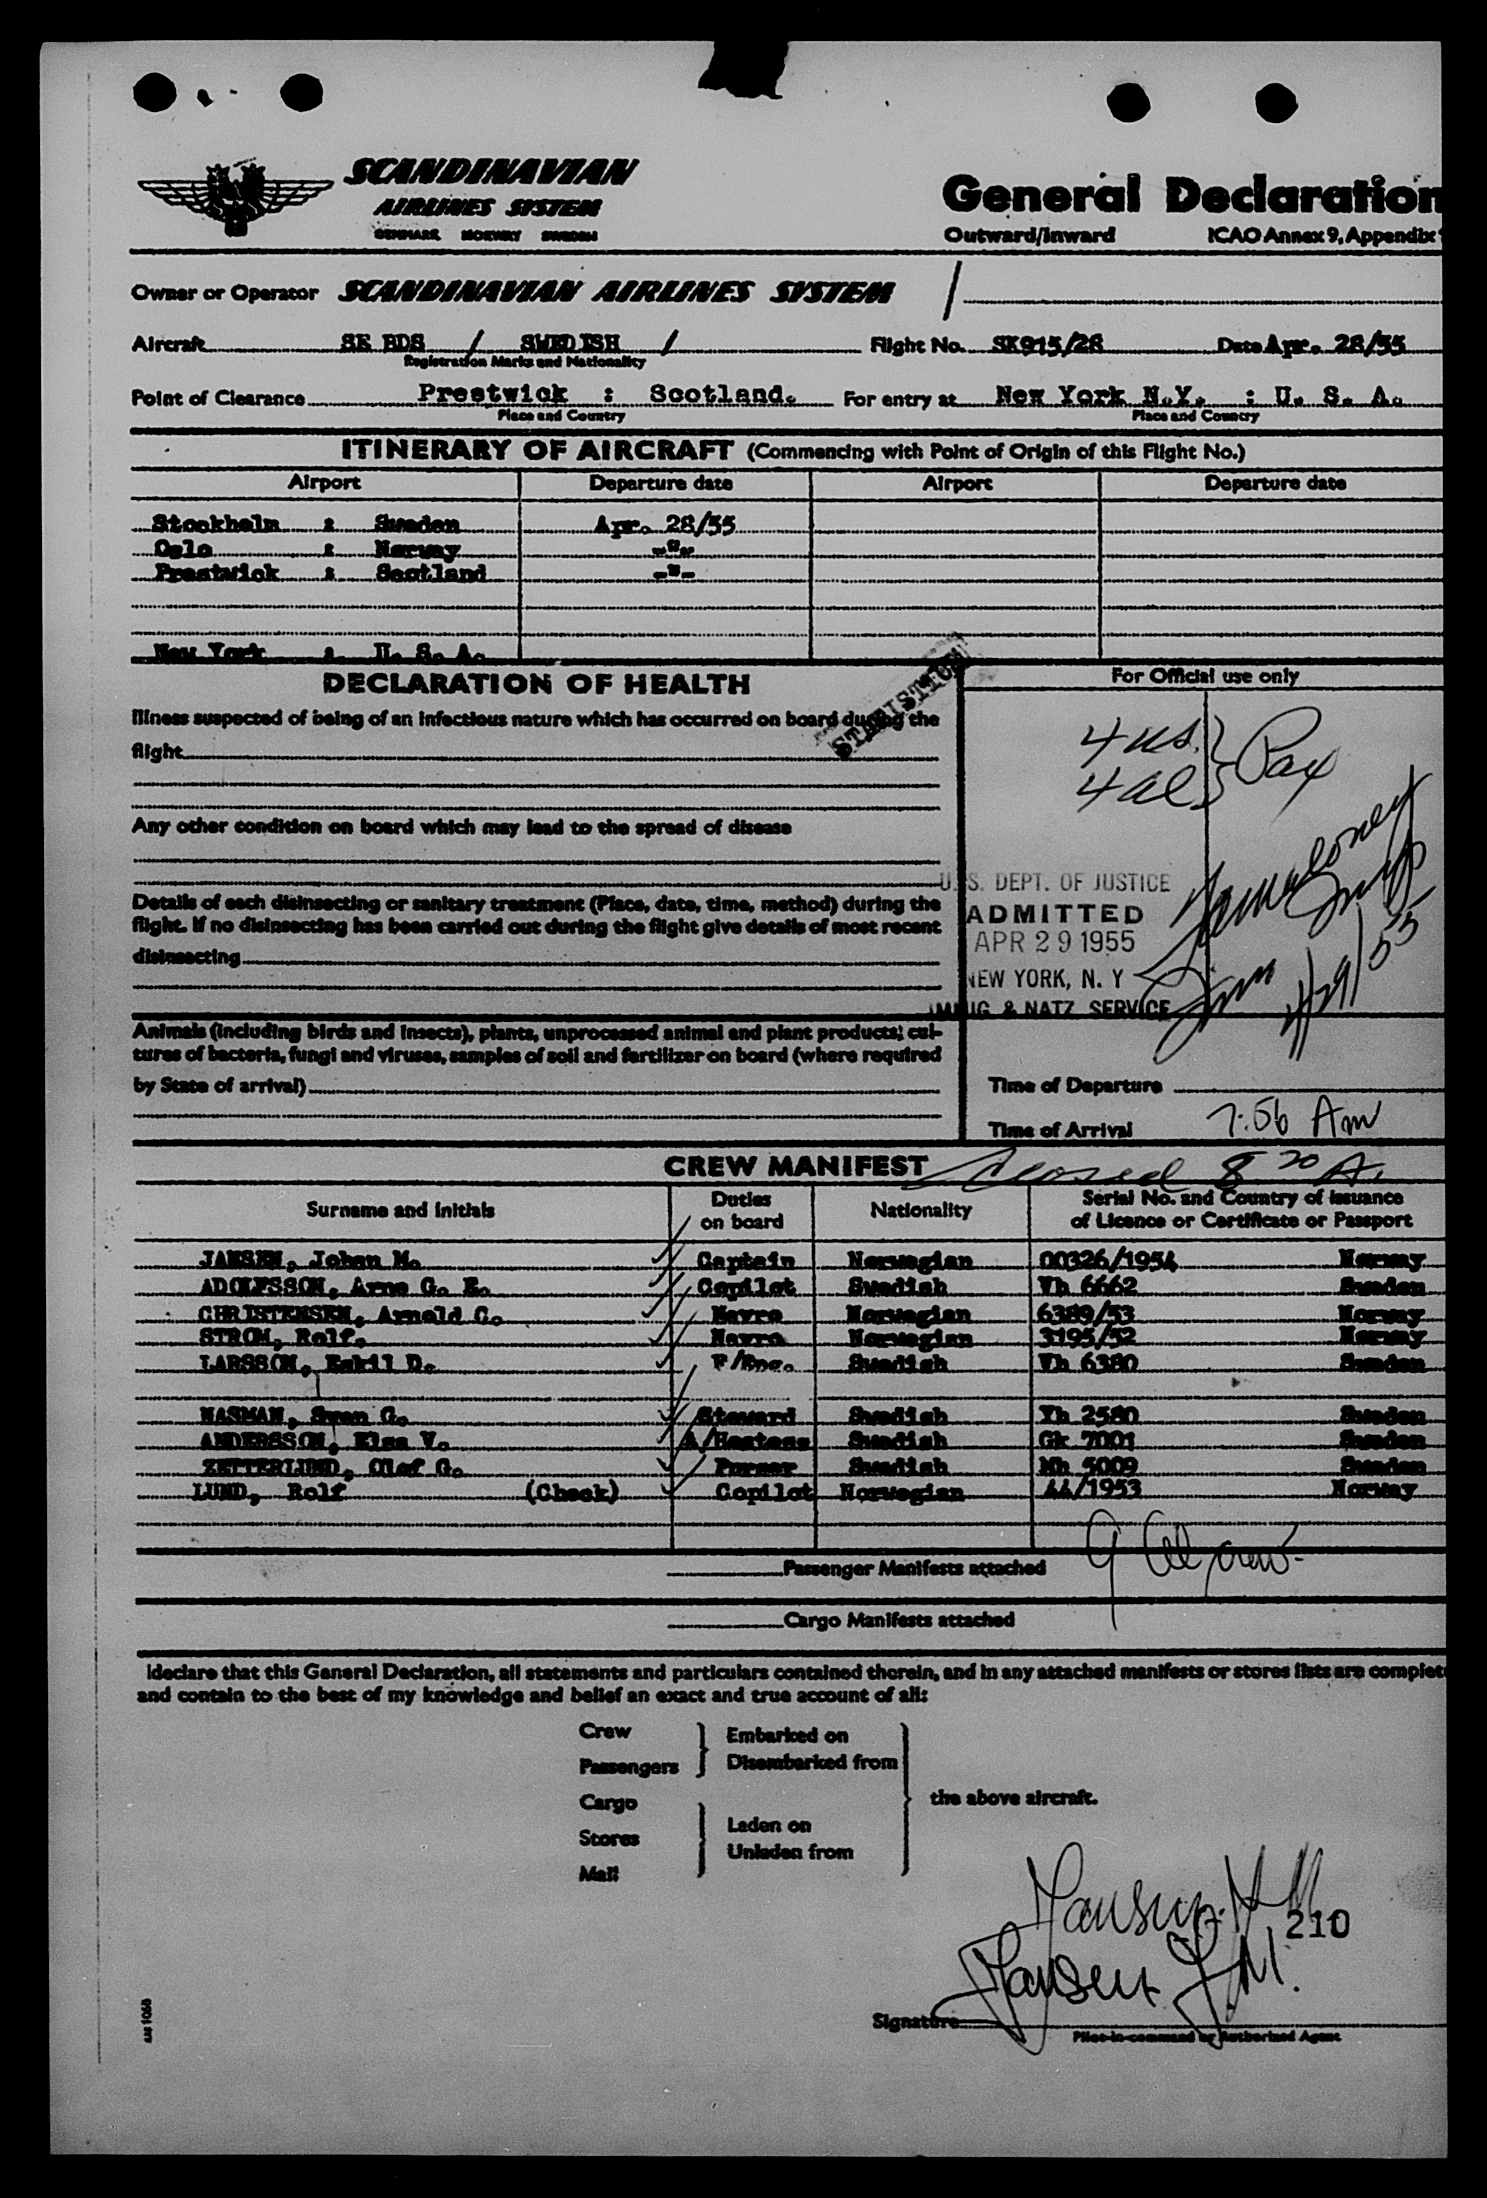 SCANDINAVIAN
AIRLINES SYSTEM
DENMARK NORWAY SWEDEN
General Declaration
Outward/Inward ICAO Annex 9, Appendix
Owner or Operator SCANDINAVIAN AIRLINES SYSTEM /
Aircraft SE BDS / SWEDISH / Flight No. SK915/28 Date Apr. 28/55
Registration Marks and Nationality
Point of Clearance Prestwick : Scotland. For entry at New York N.Y. : U. S. A.
Place and Country Place and Country
ITINERARY OF AIRCRAFT (Commencing with Point of Origin of this Flight No.)
Airport Departure date Airport Departure date
Stockholm : Sweden Apr. 28/55
Oslo : Norway -"-
Prestwick : Scotland -"-
New York : U. S. A.
DECLARATION OF HEALTH
STATISTICS
For Official use only
Illness suspected of being of an infectious nature which has occurred on board during the
flight
4 us. } Pax
4 al
Any other condition on board which may lead to the spread of disease
Details of each disinsecting or sanitary treatment (Place, date, time, method) during the
flight. If no disinsecting has been carried out during the flight give details of most recent
disinsecting
U.S. DEPT. OF JUSTICE
ADMITTED
APR 29 1955
NEW YORK, N. Y
IMMIG. & NATZ. SERVICE
4/29/55
Animals (including birds and insects), plants, unprocessed animal and plant products; cul-
tures of bacteria, fungi and viruses, samples of soil and fertilizer on board (where required
by State of arrival)
Time of Departure
Time of Arrival 7:56 Am
CREW MANIFEST
8 20 A.
Surname and Initials Duties on board Nationality Serial No. and Country of Issuance
of Licence or Certificate or Passport
JANSEN, Johan M. Captain Norwegian 00326/1954 Norway
ADOLFSSON, Arne G. E. Copilot Swedish Vh 6662 Sweden
CHRISTENSEN, Arnold C. Navro Norwegian 6389/53 Norway
STROM, Rolf. Navro Norwegian 3195/52 Norway
LARSSON, Eskil D. F/Eng. Swedish Vh 6380 Sweden
NASMAN, Sven G. Steward Swedish Yh 2580 Sweden
ANDERSSON, Elsa V. A/Hostess Swedish Gk 7001 Sweden
ZETTERLUND, Olof G. Purser Swedish Mh 5009 Sweden
LUND, Rolf (Check) Copilot Norwegian 44/1953 Norway
Passenger Manifests attached
9 al crew
Cargo Manifests attached
I declare that this General Declaration, all statements and particulars contained therein, and in any attached manifests or stores lists are complete
and contain to the best of my knowledge and belief an exact and true account of all:
Crew
Passengers
Embarked on
Disembarked from
Cargo
Stores
Mail
Laden on
Unladen from
the above aircraft.
Jansen. J. M.
210
Jansen J. M.
Signature
Pilot-in-command or Authorized Agent